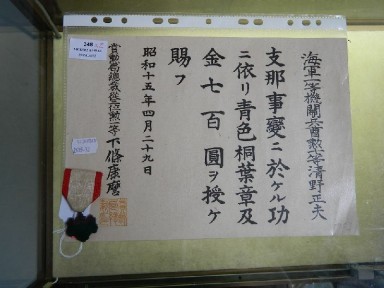 海軍一等機關兵曹勲八等清野正夫
支那事變ニ於ケル功
ニ依リ青色桐葉章及
金七百圓ヲ授ケ
賜フ
昭和十五年四月二十九日
賞勲局總裁從四位勲二等下條康麿
248